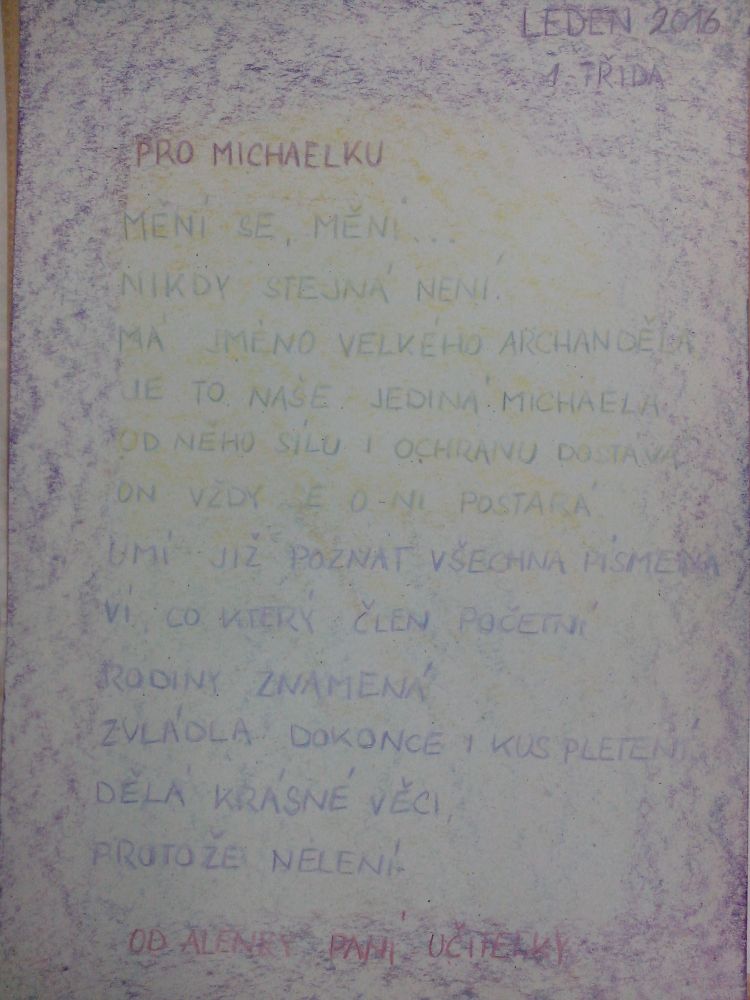 LEDEN 2016
1 TŘÍDA
PRO MICHAELKU
MĚNÍ SE, MĚNÍ...
NIKDY STEJNÁ NENÍ.
MÁ JMÉNO VELKÉHO ARCHANDĚLA
JE TO NAŠE JEDINÁ MICHAELA
OD NĚHO SÍLU I OCHRANU DOSTÁVÁ
ON VŽDY SE O NI POSTARÁ
UMÍ JIŽ POZNAT VŠECHNA PÍSMENA
VÍ, CO KTERÝ ČLEN POČETNÍ
RODINY ZNAMENÁ
ZVLÁDLA DOKONCE I KUS PLETENÍ,
DĚLÁ KRÁSNÉ VĚCI,
PROTOŽE NELENÍ.
OD ALENKY PANÍ UČITELKY